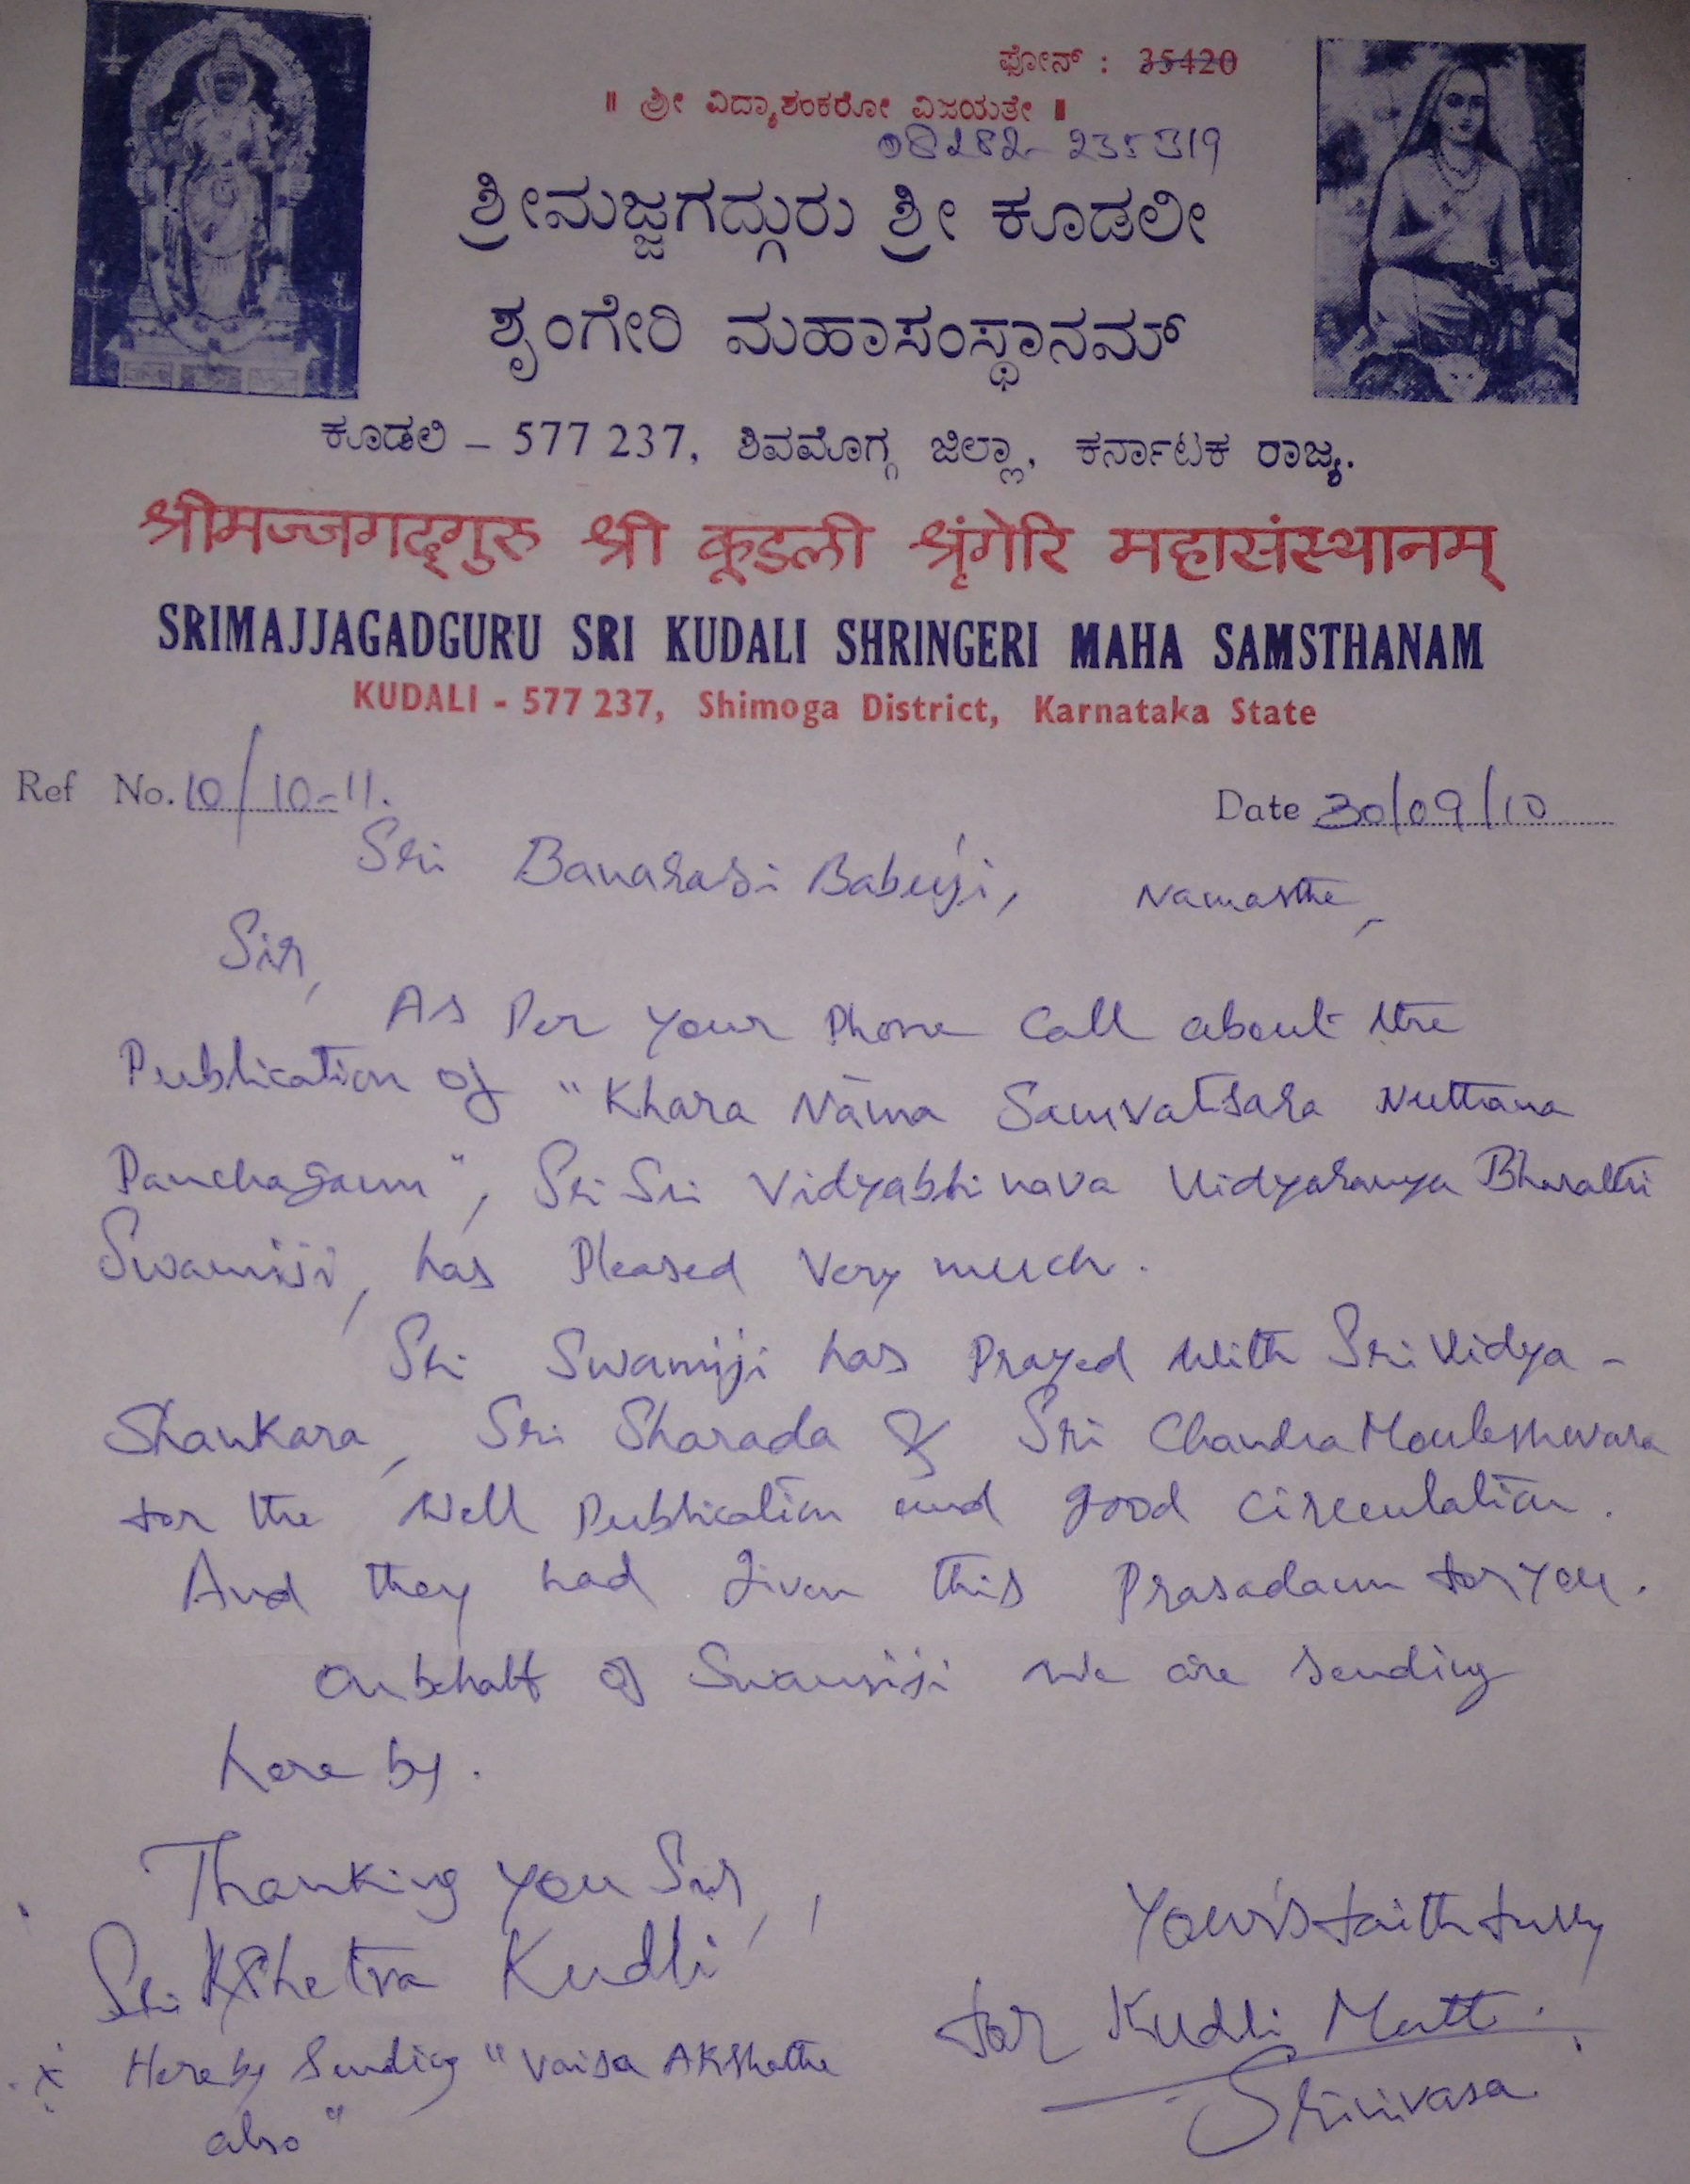 ಫೋನ್ : 35420
॥ ಶ್ರೀ ವಿದ್ಯಾಶಂಕರೋ ವಿಜಯತೇ ॥
08182-235319
ಶ್ರೀಮಜ್ಜಗದ್ಗುರು ಶ್ರೀ ಕೂಡಲೀ
ಶೃಂಗೇರಿ ಮಹಾಸಂಸ್ಥಾನಮ್
ಕೂಡಲಿ – 577 237, ಶಿವಮೊಗ್ಗ ಜಿಲ್ಲಾ, ಕರ್ನಾಟಕ ರಾಜ್ಯ.
श्रीमज्जगद्गुरु श्री कूडली श्रृंगेरि महासंस्थानम्
SRIMAJJAGADGURU SRI KUDALI SHRINGERI MAHA SAMSTHANAM
KUDALI - 577 237, Shimoga District, Karnataka State
Ref No. 10/10-11.
Date 30/09/10
Sri Banarasi Babuji, Namasthe,
Sir,
As Per your Phone Call about the
Publication of "Khara Nāma Samvatsara Nuttana
Panchagam", Sri Sri Vidyabhinava Vidyaranya Bharathi
Swamiji, has Pleased Very much.
Sri Swamiji has Prayed With Sri Vidya -
Shankara, Sri Sharada & Sri Chandra Mouleshwara
for the Well Publication and good circulation.
And they had given this Prasadam for you.
On behalf of Swamiji We are sending
here by.
Thanking you Sir,,
Sri Kshetra Kudli
Your's faithfully
for Kudli Mutt.
Srinivasa
x Here by Sending "Vaisa AKShathe
also"